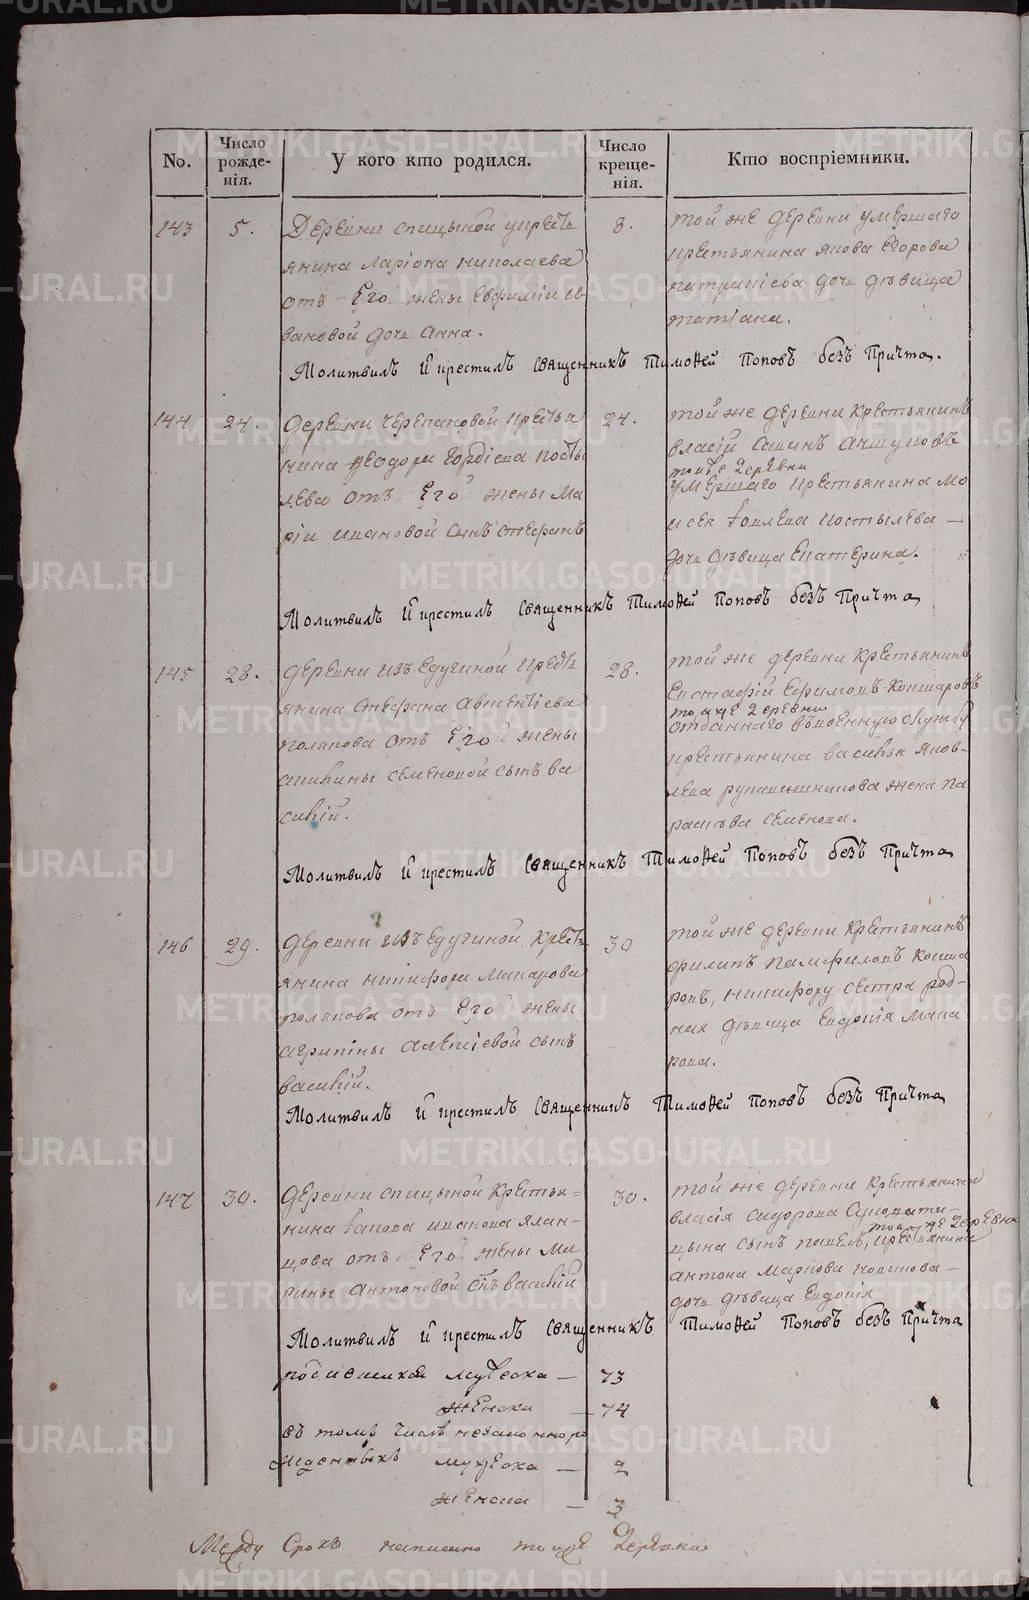 No. Число рожденія. У кого кто родился. Число крещенія. Кто воспріемники.
143 5. Деревни спицыной у крестъ
янина Ларіона николаева
отъ Его жены Евфиміи и
вановой дочь Анна.
8. той же деревни умершаго
крестьянина якова Егорова
дочь дѣвица
татіана.
Молитвилъ и крестилъ Священникъ Тимоѳей Поповъ безъ Причта.
144 24. деревни черепановой крестья
нина Ѳеодора Гордіева посты
лева отъ Его жены Ма
ріи ивановой сынъ стефанъ
24. той же деревни крестьянинъ
власій савинъ
тойже деревни
умершаго крестьянина мо
исея постылева —
дочь дѣвица Екатерина.
Молитвилъ и крестилъ Священникъ Тимоѳей Поповъ безъ Причта
145 28. деревни изъедугиной крестъ
янина стефана
полякова отъ Его жены
акилины семеновой сынъ ва
силій.
28. той же деревни крестьянинъ
Евстафій Ефимовъ Кошкаровъ
тойже деревни
отданнаго въ военную службу
крестьянина василья яков-
лева рукавишникова жена па
расковa семенова.
Молитвилъ и крестилъ Священникъ Тимоѳей Поповъ безъ Причта
146 29. деревни изъедугиной крестъ
янина никифора макарова
полякова отъ Его жены
агрипины алексіевой сынъ
василій.
30 той же деревни крестьянинъ
филипъ памфиловъ кошка
ровъ, никифору сестра род-
ная дѣвица Евдокія мака
рова.
Молитвилъ и крестилъ Священникъ Тимоѳей Поповъ безъ Причта
147 30. деревни спицыной крестья-
нина іакова исакова
цова отъ Его жены Ма
рины антоновой сынъ василій
30. той же деревни крестьянина
власія сидорова
тойже деревни
цына сынъ павелъ, крестьянина
антона маркова новикова —
дочь дѣвица Евдокія
Молитвилъ и крестилъ Священникъ Тимоѳей Поповъ безъ Причта
родившихся мужеска — 73
женска — 74
въ томъ числѣ незаконноро
жденныхъ мужеска — 2
женска — 3
Между Срокъ написано тойже деревни
METRIKI.GASO-URAL.RU